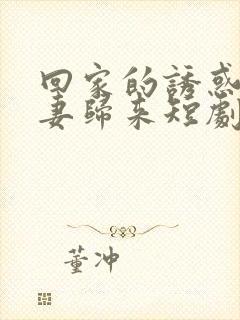 回家的誘惑
妻歸來短劇
董冲